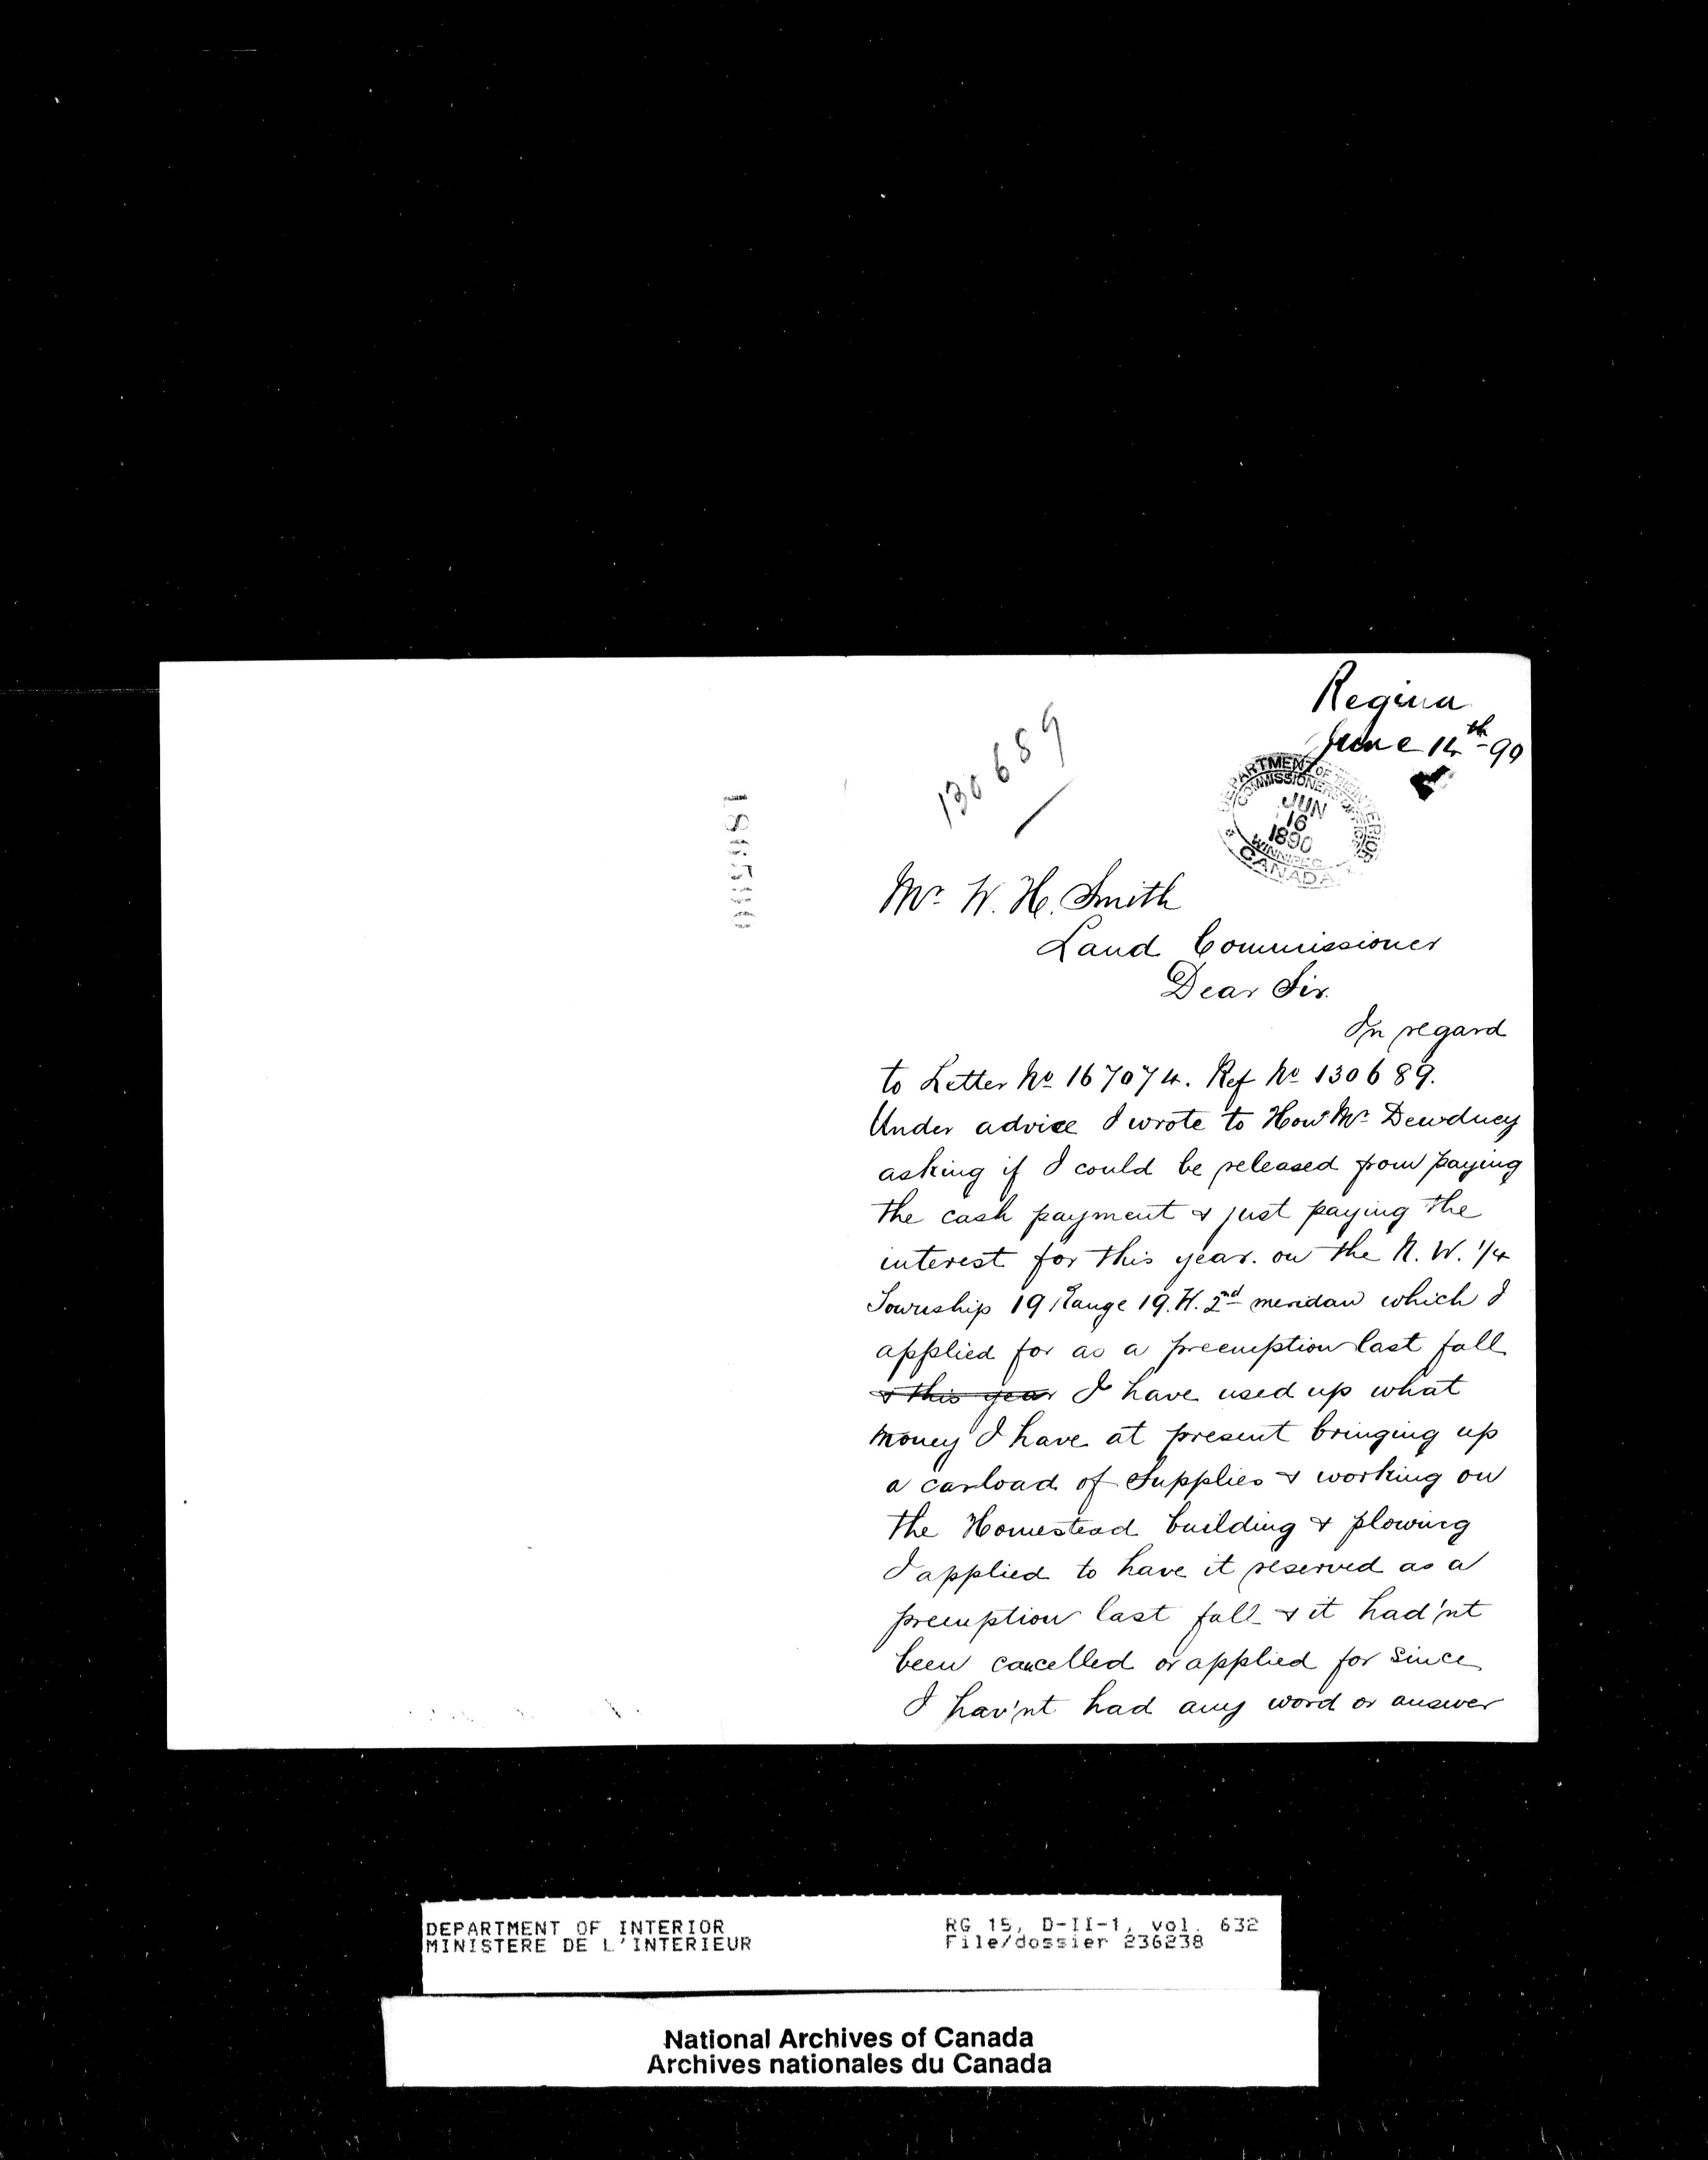 Regina
June 14th - 90
130689
DEPARTMENT OF THE INTERIOR
COMMISSIONERS OFFICE
JUN
16
1890
WINNIPEG
CANADA
Mr. W. H. Smith
Land Commissioner
Dear Sir.
In regard
to Letter No 167074. Ref No 130689.
Under advice I wrote to Hon Mr Dewdney
asking if I could be released from paying
the cash payment & just paying the
interest for this year. on the N. W. 1/4
Township 19 Range 19. W. 2nd meridan which I
applied for as a preemption last fall
& this year I have used up what
money I have at present bringing up
a carload of Supplies & working on
the Homestead building & plowing
I applied to have it reserved as a
preemption last fall & it had'nt
been cancelled or applied for since
I hav'nt had any word or answer
DEPARTMENT OF INTERIOR
MINISTERE DE L'INTERIEUR
RG 15, D-II-1, vol. 632
File/dossier 236238
National Archives of Canada
Archives nationales du Canada